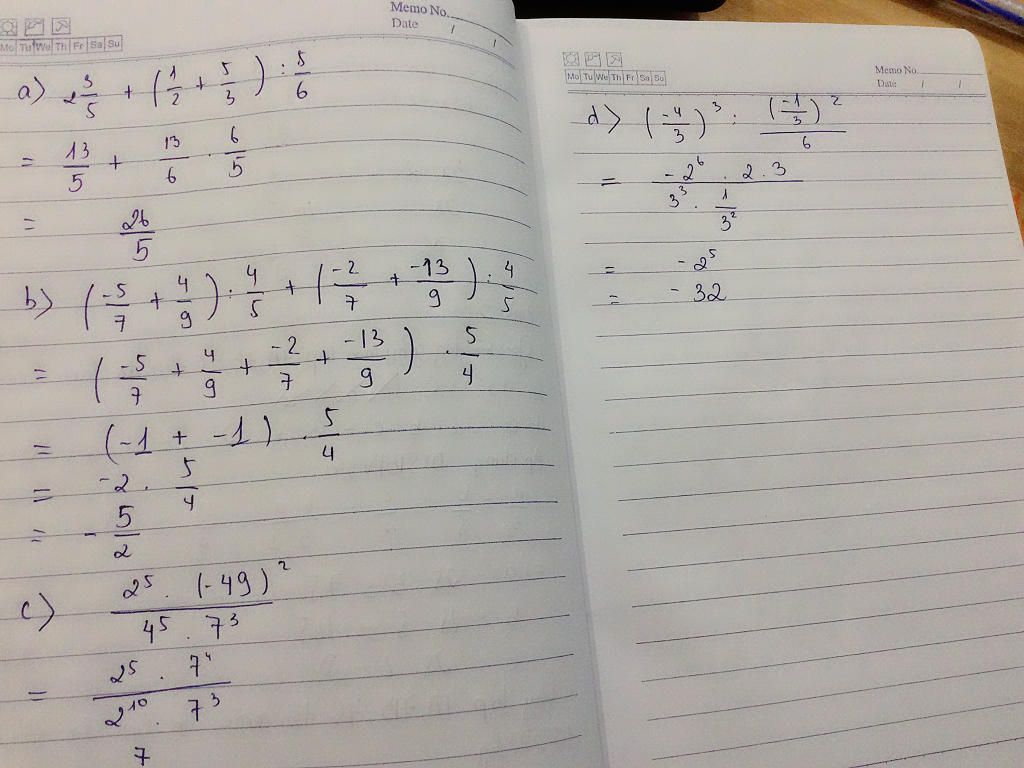 Memo No.
Date / /
Mo Tu We Th Fr Sa Su
a) 2 3/5 + (1/2 + 5/3) : 5/6
= 13/5 + 13/6 . 6/5
= 26/5
b) (-5/7 + 4/9) : 4/5 + (-2/7 + -13/9) : 4/5
= (-5/7 + 4/9 + -2/7 + -13/9) . 5/4
= (-1 + -1) . 5/4
= -2 . 5/4
= - 5/2
c) 2⁵ . (-49)² / 4⁵ . 7³
= 2⁵ . 7⁴ / 2¹⁰ . 7³
7
Mo Tu We Th Fr Sa Su
Memo No.
Date / /
d) (-4/3)³ : (-1/3)² / 6
= -2⁶ . 2 . 3 / 3³ . 1/3²
= -2⁵
= - 32